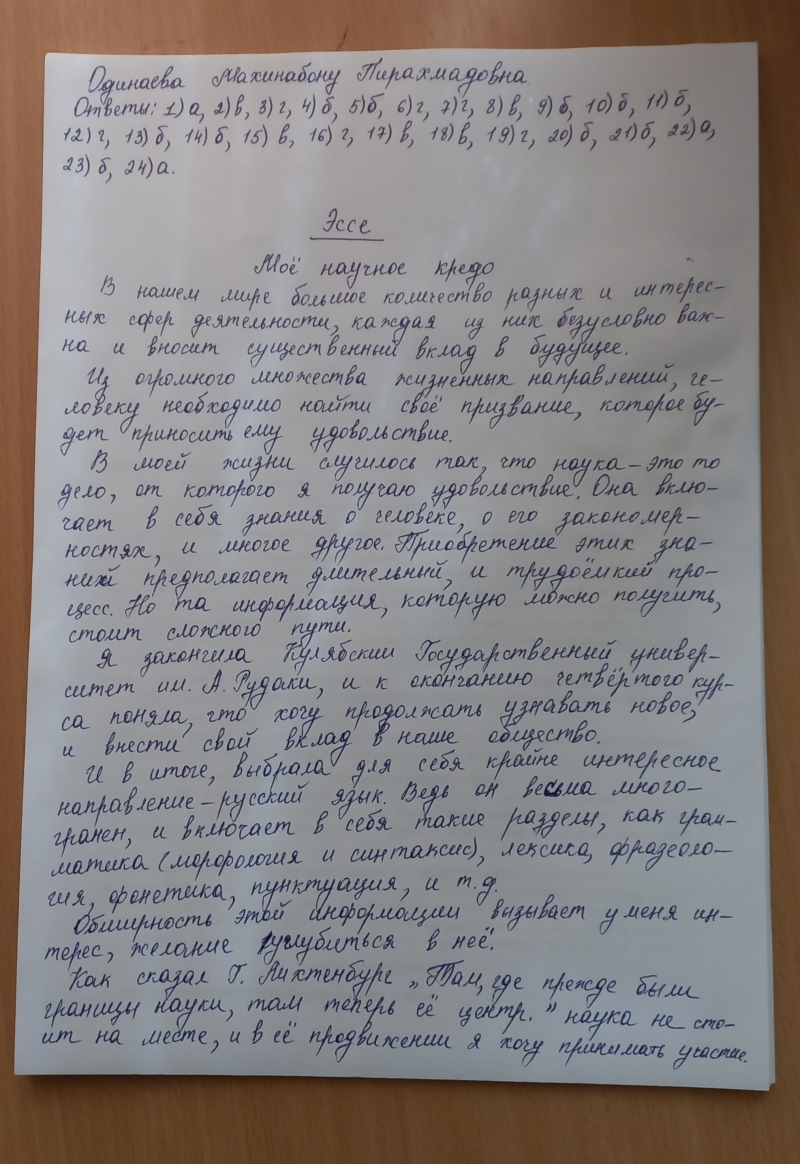 Одинаева Махинабону Пирахмадовна
Ответы: 1) а, 2) в, 3) г, 4) б, 5) б, 6) г, 7) г, 8) в, 9) б, 10) б, 11) б,
12) г, 13) б, 14) б, 15) в, 16) г, 17) в, 18) в, 19) г, 20) б, 21) б, 22) а,
23) б, 24) а.
Эссе
Моё научное кредо
В нашем мире большое количество разных и интерес-
ных сфер деятельности, каждая из них безусловно важ-
на и вносит существенный вклад в будущее.
Из огромного множества жизненных направлений, че-
ловеку необходимо найти своё призвание, которое бу-
дет приносить ему удовольствие.
В моей жизни случилось так, что наука – это то
дело, от которого я получаю удовольствие. Она вклю-
чает в себя знания о человеке, о его закономер-
ностях, и многое другое. Приобретение этих зна-
ний предполагает длительный, и трудоёмкий про-
цесс. Но та информация, которую можно получить,
стоит сложного пути.
Я закончила Кулябский Государственный универ-
ситет им. А. Рудаки, и к окончанию четвёртого кур-
са поняла, что хочу продолжать узнавать новое,
и внести свой вклад в наше общество.
И в итоге, выбрала для себя крайне интересное
направление – русский язык. Ведь он весьма много-
гранен, и включает в себя такие разделы, как грам-
матика (морфология и синтаксис), лексика, фразеоло-
гия, фонетика, пунктуация, и т.д.
Обширность этой информации вызывает у меня ин-
терес, желание углубиться в неё.
Как сказал Г. Лихтенбург „Там, где прежде были
границы науки, там теперь её центр.” наука не сто-
ит на месте, и в её продвижении я хочу принимать участие.